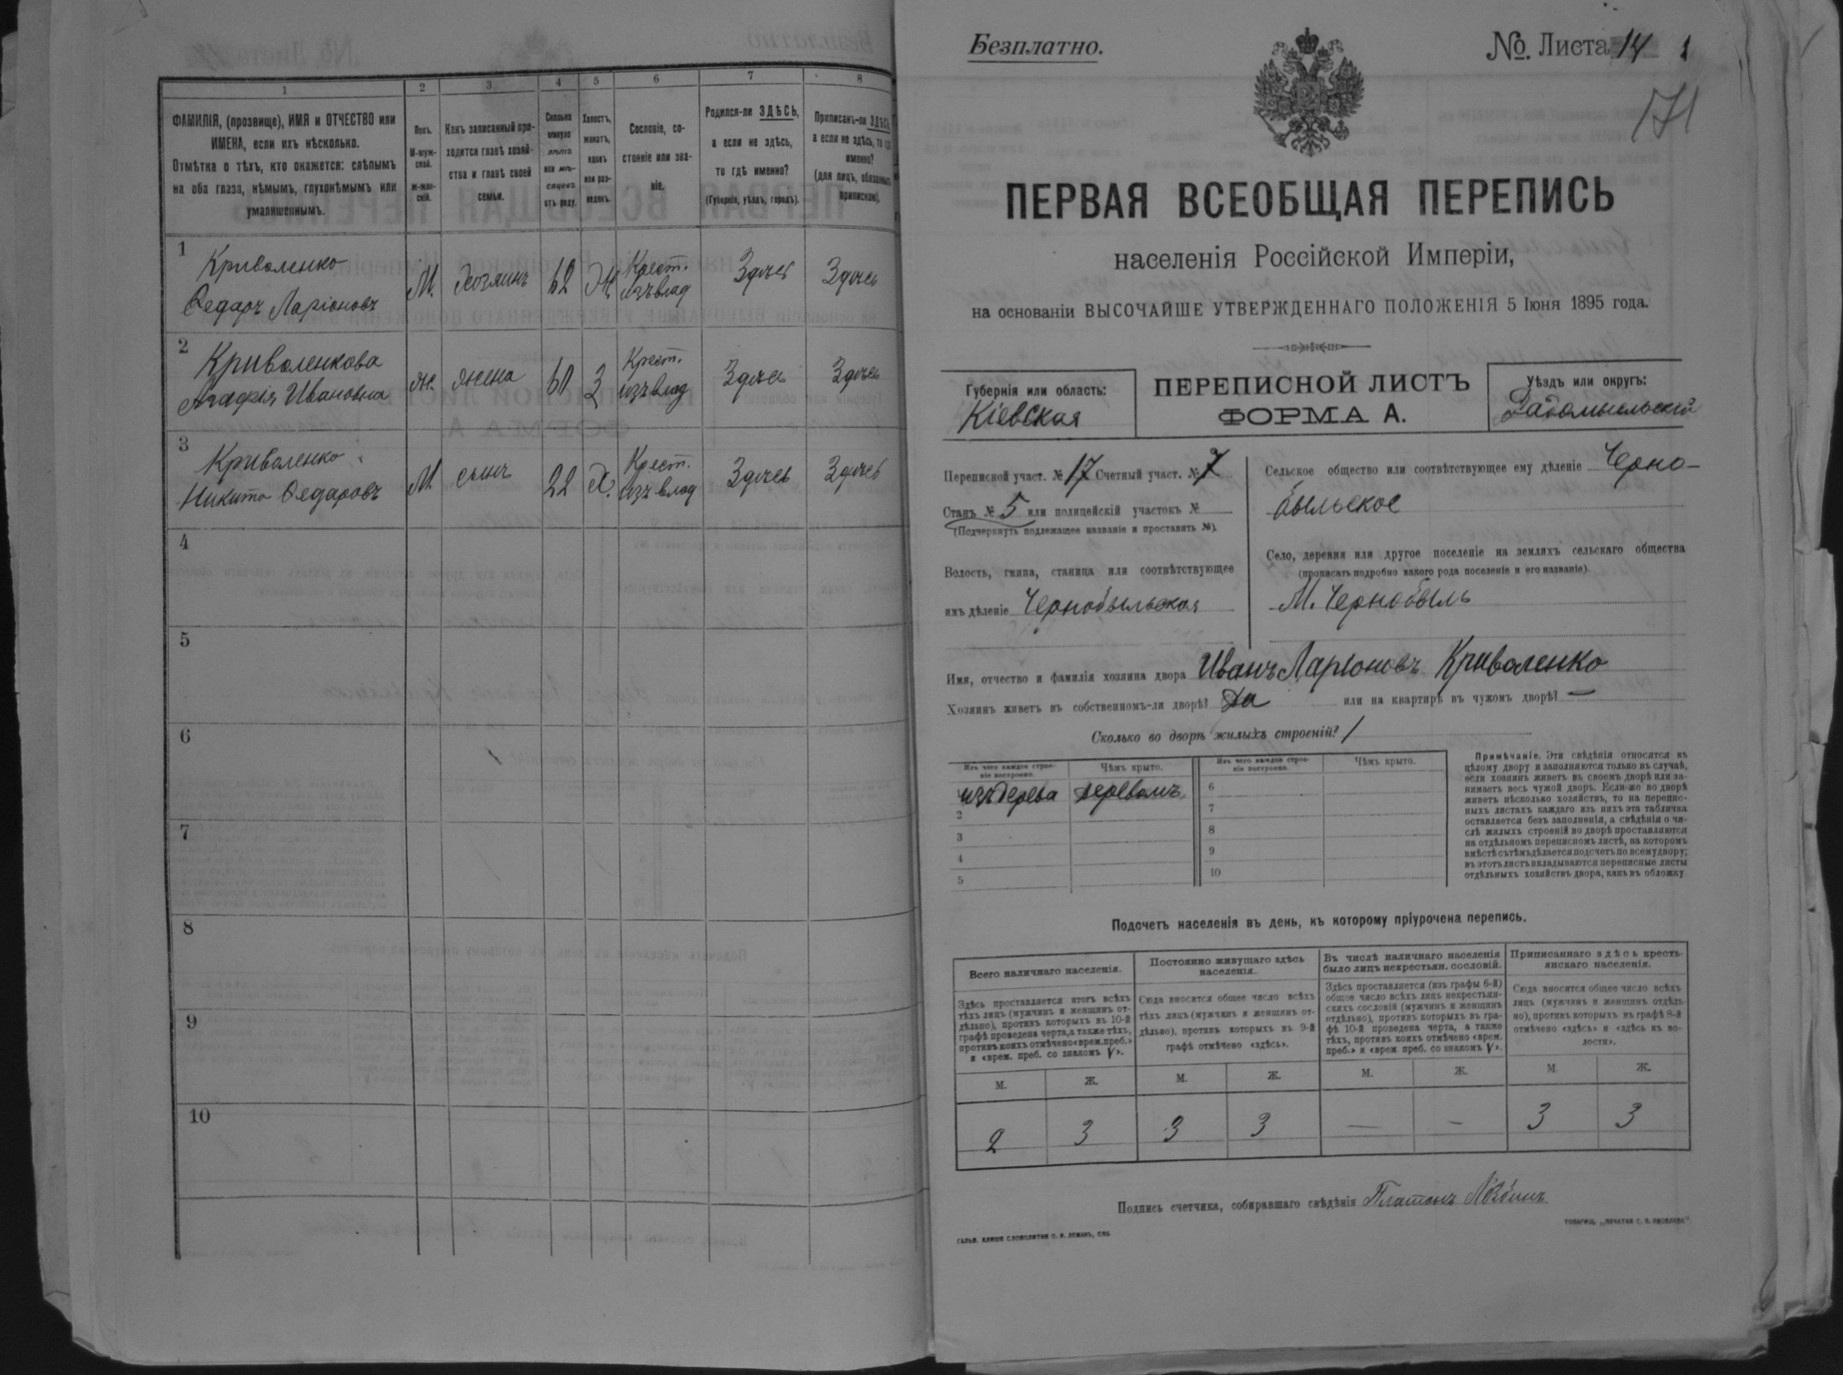 1 2 3 4 5 6 7 8
ФАМИЛІЯ, (прозвище), ИМЯ и ОТЧЕСТВО или
ИМЕНА, если ихъ нѣсколько.
Отмѣтка о тѣхъ, кто окажется: слѣпымъ
на оба глаза, нѣмымъ, глухонѣмымъ или
умалишеннымъ.
Полъ.
М-муж-
ской.
ж-жен-
скій.
Какъ записанный при-
ходится главѣ хозяй-
ства и главѣ своей
семьи.
Сколько
минуло
лѣтъ
или мѣ-
сяцевъ
отъ роду.
Холостъ,
женатъ,
вдовъ
или раз-
веденъ.
Сословіе, со-
стояніе или зва-
ніе.
Родился-ли ЗДѢСЬ,
а если не здѣсь,
то гдѣ именно?
(Губернія, уѣздъ, городъ).
Приписанъ-ли ЗДѢСЬ,
а если не здѣсь, то гдѣ
именно?
(для лицъ, обязанныхъ
припиской).
1
Криволенко М. Хозяинъ 62 Ж. Крест. Здѣсь Здѣсь
Ѳедоръ Ларіоновъ изъ влад
2
Криволенкова ж. жена 60 З Крест. Здѣсь Здѣсь
Агафія Ивановна изъ влад
3
Криволенко М. сынъ 22 Х. Крест. Здѣсь Здѣсь
Никита Ѳедоровъ изъ влад
4
5
6
7
8
9
10
Безплатно.
№. Листа 14
171
ПЕРВАЯ ВСЕОБЩАЯ ПЕРЕПИСЬ
населенія Россійской Имперіи,
на основаніи ВЫСОЧАЙШЕ УТВЕРЖДЕННАГО ПОЛОЖЕНІЯ 5 Іюня 1895 года.
Губернія или область:
Кіевская
ПЕРЕПИСНОЙ ЛИСТЪ
ФОРМА А.
Уѣздъ или округъ:
Радомысльскій
Переписной участ. № 17 Счетный участ. № 7
Станъ № 5 или полицейскій участокъ №
(Подчеркнуть подлежащее названіе и проставить №).
Волость, гмина, станица или соотвѣтствующее
имъ дѣленіе Чернобыльская
Сельское общество или соотвѣтствующее ему дѣленіе Черно-
быльское
Село, деревня или другое поселеніе на земляхъ сельскаго общества
(прописать подробно какого рода поселеніе и его названіе).
М. Чернобыль
Имя, отчество и фамилія хозяина двора Иванъ Ларіоновъ Криволенко
Хозяинъ живетъ въ собственномъ-ли дворѣ? Да или на квартирѣ въ чужомъ дворѣ? —
Сколько во дворѣ жилыхъ строеній? 1
Изъ чего каждое строе-
ніе построено.
Чѣмъ крыто.
Изъ чего каждое строе-
ніе построено.
Чѣмъ крыто.
изъ дерева деревомъ
2
3
4
5
6
7
8
9
10
Примѣчаніе. Эти свѣдѣнія относятся къ
цѣлому двору и заполняются только въ случаѣ,
если хозяинъ живетъ въ своемъ дворѣ или за-
нимаетъ весь чужой дворъ. Если-же во дворѣ
живетъ нѣсколько хозяйствъ, то на перепис-
ныхъ листахъ каждаго изъ нихъ эта табличка
оставляется безъ заполненія, а свѣдѣнія о чи-
слѣ жилыхъ строеній во дворѣ проставляются
на отдѣльномъ переписномъ листѣ, на которомъ
вмѣстѣ съ тѣмъ дѣлается подсчетъ по всему двору;
въ этотъ листъ вкладываются переписные листы
отдѣльныхъ хозяйствъ двора, какъ въ обложку
Подсчетъ населенія въ день, къ которому пріурочена перепись.
Всего наличнаго населенія.
Здѣсь проставляется итогъ всѣхъ
тѣхъ лицъ (мужчинъ и женщинъ от-
дѣльно), противъ которыхъ въ 10-й
графѣ проведена черта, а также тѣхъ,
противъ коихъ отмѣчено «врем. преб.»
и «врем. преб. со знакомъ V».
Постоянно живущаго здѣсь
населенія.
Сюда вносится общее число всѣхъ
тѣхъ лицъ (мужчинъ и женщинъ от-
дѣльно), противъ которыхъ въ 9-й
графѣ отмѣчено «здѣсь».
Въ числѣ наличнаго населенія
было лицъ некрестьян. сословій.
Здѣсь проставляется (изъ графы 6-й)
общее число всѣхъ лицъ некрестьян-
скихъ сословій (мужчинъ и женщинъ
отдѣльно), противъ которыхъ въ гра-
фѣ 10-й проведена черта, а также
тѣхъ, противъ коихъ отмѣчено «врем.
преб.» и «врем. преб. со знакомъ V».
Приписаннаго здѣсь кресть-
янскаго населенія.
Сюда вносится общее число всѣхъ
лицъ (мужчинъ и женщинъ отдѣль-
но), противъ которыхъ въ графѣ 8-й
отмѣчено «здѣсь» и «здѣсь въ во-
лости».
М. Ж. М. Ж. М. Ж. М. Ж.
2 3 3 3 — — 3 3
Подпись счетчика, собиравшаго свѣдѣнія Платонъ